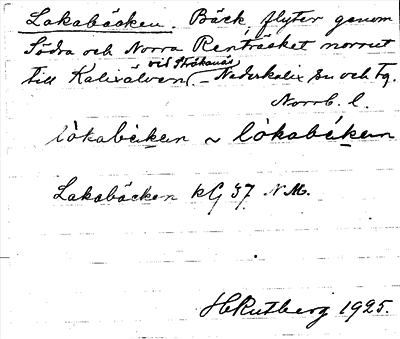 Lakabäcken. Bäck, flyter genom
Södra och Norra Renträsket norrut
till Kalixälven vid Stråkanäs. – Nederkalix Sn och Tg.
Norrb. l.
lòkabékən ~ lòkabékən
Lakabäcken kG 37 N.M.
HRutberg 1925.